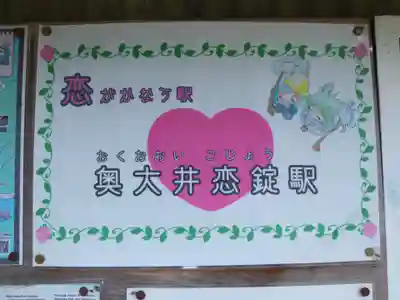 恋がかなう駅
おくおおい こじょう
奥大井恋錠駅